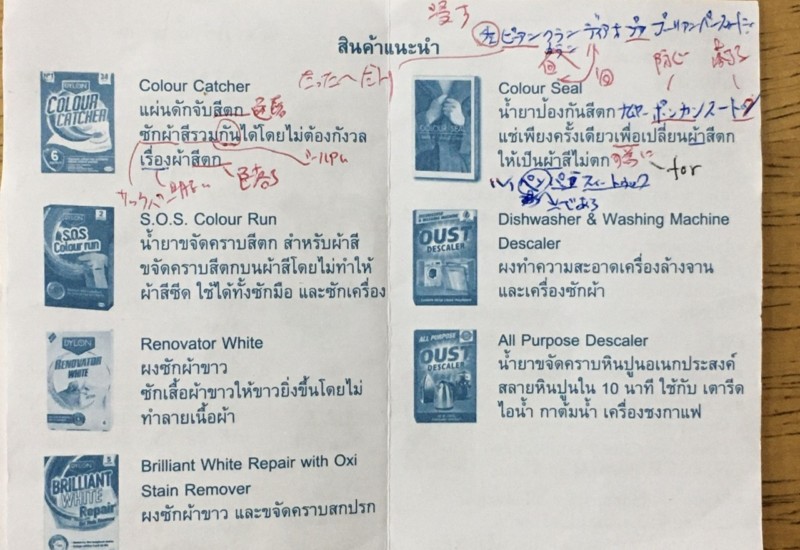 สินค้าแนะนำ
DYLON
COLOUR
CATCHER
6
Colour Catcher
แผ่นดักจับสีตก
ซักผ้าสีรวมกันได้โดยไม่ต้องกังวล
เรื่องผ้าสีตก
S.O.S.
Colour run
S.O.S. Colour Run
น้ำยาขจัดคราบสีตก สำหรับผ้าสี
ขจัดคราบสีตกบนผ้าสีโดยไม่ทำให้
ผ้าสีซีด ใช้ได้ทั้งซักมือ และซักเครื่อง
DYLON
RENOVATOR
WHITE
Renovator White
ผงซักผ้าขาว
ซักเสื้อผ้าขาวให้ขาวยิ่งขึ้นโดยไม่
ทำลายเนื้อผ้า
DYLON
BRILLIANT
WHITE
Repair
Brilliant White Repair with Oxi
Stain Remover
ผงซักผ้าขาว และขจัดคราบสกปรก
COLOUR SEAL
Colour Seal
น้ำยาป้องกันสีตก
แช่เพียงครั้งเดียวเพื่อเปลี่ยนผ้าสีตก
ให้เป็นผ้าสีไม่ตก
for
OUST
DESCALER
Dishwasher & Washing Machine
Descaler
ผงทำความสะอาดเครื่องล้างจาน
และเครื่องซักผ้า
ALL PURPOSE
OUST
DESCALER
All Purpose Descaler
น้ำยาขจัดคราบหินปูนอเนกประสงค์
สลายหินปูนใน 10 นาที ใช้กับ เตารีด
ไอน้ำ กาต้มน้ำ เครื่องชงกาแฟ